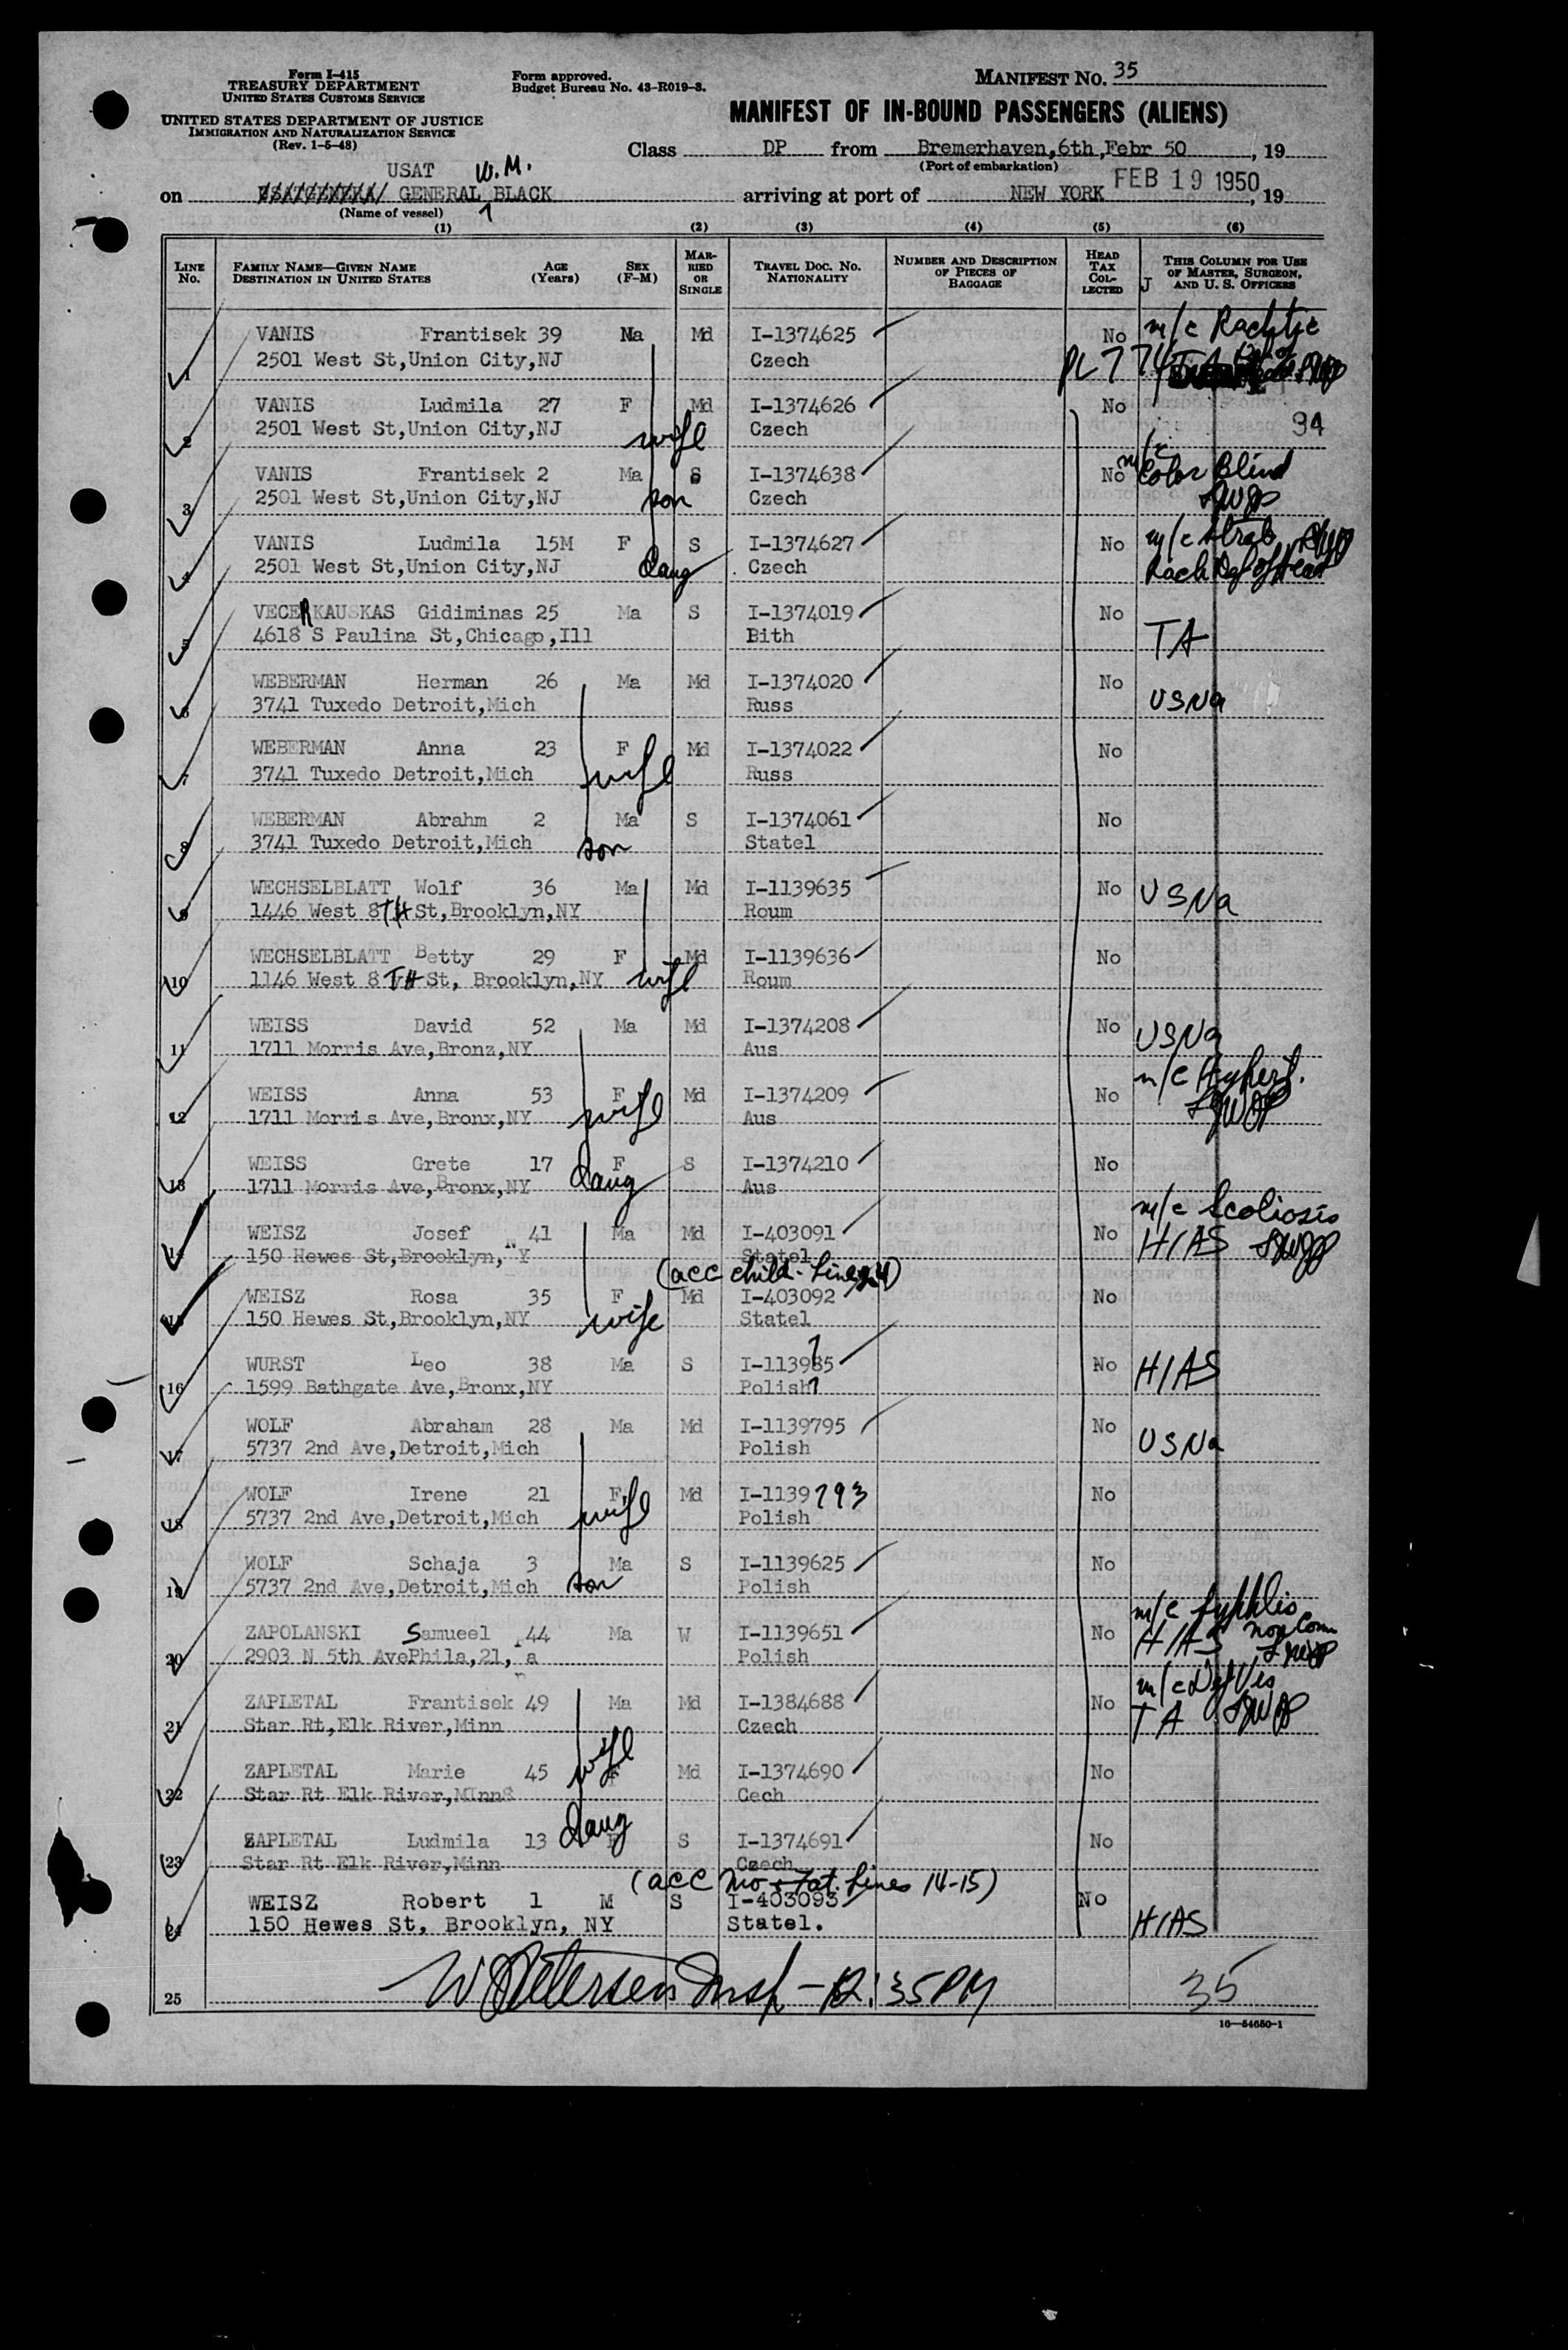 Form I-415
TREASURY DEPARTMENT
UNITED STATES CUSTOMS SERVICE
UNITED STATES DEPARTMENT OF JUSTICE
IMMIGRATION AND NATURALIZATION SERVICE
(Rev. 1-5-48)
Form approved.
Budget Bureau No. 43-R019-3.
MANIFEST No. 35
MANIFEST OF IN-BOUND PASSENGERS (ALIENS)
Class DP from Bremerhaven,6th,Febr 50, 19
(Port of embarkation)
USAT W.M.
on GENERAL BLACK arriving at port of NEW YORK FEB 19 1950, 19
(Name of vessel)
(1) (2) (3) (4) (5) (6)
LINE No. FAMILY NAME—GIVEN NAME DESTINATION IN UNITED STATES AGE (Years) SEX (F-M) MARRIED OR SINGLE TRAVEL DOC. NO. NATIONALITY NUMBER AND DESCRIPTION OF PIECES OF BAGGAGE HEAD TAX COLLECTED THIS COLUMN FOR USE OF MASTER, SURGEON, AND U. S. OFFICERS
VANIS Frantisek 39 Ma Md I-1374625 No m/c
1 2501 West St,Union City,NJ Czech PL 774
VANIS Ludmila 27 F Md I-1374626 No
2 2501 West St,Union City,NJ wife Czech 34
VANIS Frantisek 2 Ma S I-1374638 No m/c Color Blind
3 2501 West St,Union City,NJ son Czech
VANIS Ludmila 15M F S I-1374627 No m/c Strab
4 2501 West St,Union City,NJ daug Czech Rach Def of
VECERKAUSKAS Gidiminas 25 Ma S I-1374019 No
5 4618 S Paulina St,Chicago,Ill Bith TA
WEBERMAN Herman 26 Ma Md I-1374020 No
6 3741 Tuxedo Detroit,Mich Russ USNa
WEBERMAN Anna 23 F Md I-1374022 No
7 3741 Tuxedo Detroit,Mich wife Russ
WEBERMAN Abrahm 2 Ma S I-1374061 No
8 3741 Tuxedo Detroit,Mich son Statel
WECHSELBLATT Wolf 36 Ma Md I-1139635 No USNa
9 1446 West 8TH St,Brooklyn,NY Roum
WECHSELBLATT Betty 29 F Md I-1139636 No
10 1146 West 8TH St, Brooklyn,NY wife Roum
WEISS David 52 Ma Md I-1374208 No USNa
11 1711 Morris Ave,Bronz,NY Aus
WEISS Anna 53 F Md I-1374209 No m/c Hypert.
12 1711 Morris Ave,Bronx,NY wife Aus
WEISS Grete 17 F S I-1374210 No
13 1711 Morris Ave,Bronx,NY daug Aus
WEISZ Josef 41 Ma Md I-403091 No m/c Scoliosis
14 150 Hewes St,Brooklyn,NY Statel HIAS
(acc child - Line 24)
WEISZ Rosa 35 F Md I-403092 No
15 150 Hewes St,Brooklyn,NY wife Statel
WURST Leo 38 Ma S I-113985 7 No HIAS
16 1599 Bathgate Ave,Bronx,NY Polish
WOLF Abraham 28 Ma Md I-1139795 No
17 5737 2nd Ave,Detroit,Mich Polish USNa
WOLF Irene 21 F Md I-1139793 No
18 5737 2nd Ave,Detroit,Mich wife Polish
WOLF Schaja 3 Ma S I-1139625 No
19 5737 2nd Ave,Detroit,Mich son Polish
ZAPOLANSKI Samueel 44 Ma W I-1139651 No m/c Syphlis non Comm
20 2903 N 5th AvePhila,21, a Polish HIAS
ZAPLETAL Frantisek 49 Ma Md I-1384688 No m/c Def Vis
21 Star Rt,Elk River,Minn Czech TA
ZAPLETAL Marie 45 F Md I-1374690 No
22 Star Rt Elk River,MInnS wife Cech
ZAPLETAL Ludmila 13 F S I-1374691 No
23 Star Rt Elk River,Minn daug Czech
(acc Mo + Fat. Lines 14-15)
WEISZ Robert 1 M S I-403093 No
24 150 Hewes St, Brooklyn, NY Statel. HIAS
25 W Petersen Insp - 12:35PM 35
16—54650-1